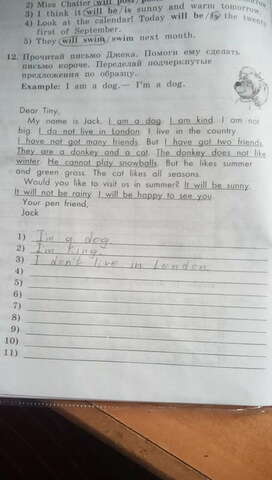 2) Miss Chatter will post/
3) I think it will be/is sunny and warm tomorrow.
4) Look at the calendar! Today will be/is the twenty
first of September.
5) They will swim/swim next month.
12. Прочитай письмо Джека. Помоги ему сделать
письмо короче. Переделай подчеркнутые
предложения по образцу.
Example: I am a dog. — I'm a dog.
Dear Tiny,
My name is Jack. I am a dog. I am kind. I am not
big. I do not live in London. I live in the country.
I have not got many friends. But I have got two friends.
They are a donkey and a cat. The donkey does not like
winter. He cannot play snowballs. But he likes summer
and green grass. The cat likes all seasons.
Would you like to visit us in summer? It will be sunny.
It will not be rainy. I will be happy to see you.
Your pen friend,
Jack
1) I'm a dog
2) I'm king.
3) I don't live in London.
4)
5)
6)
7)
8)
9)
10)
11)